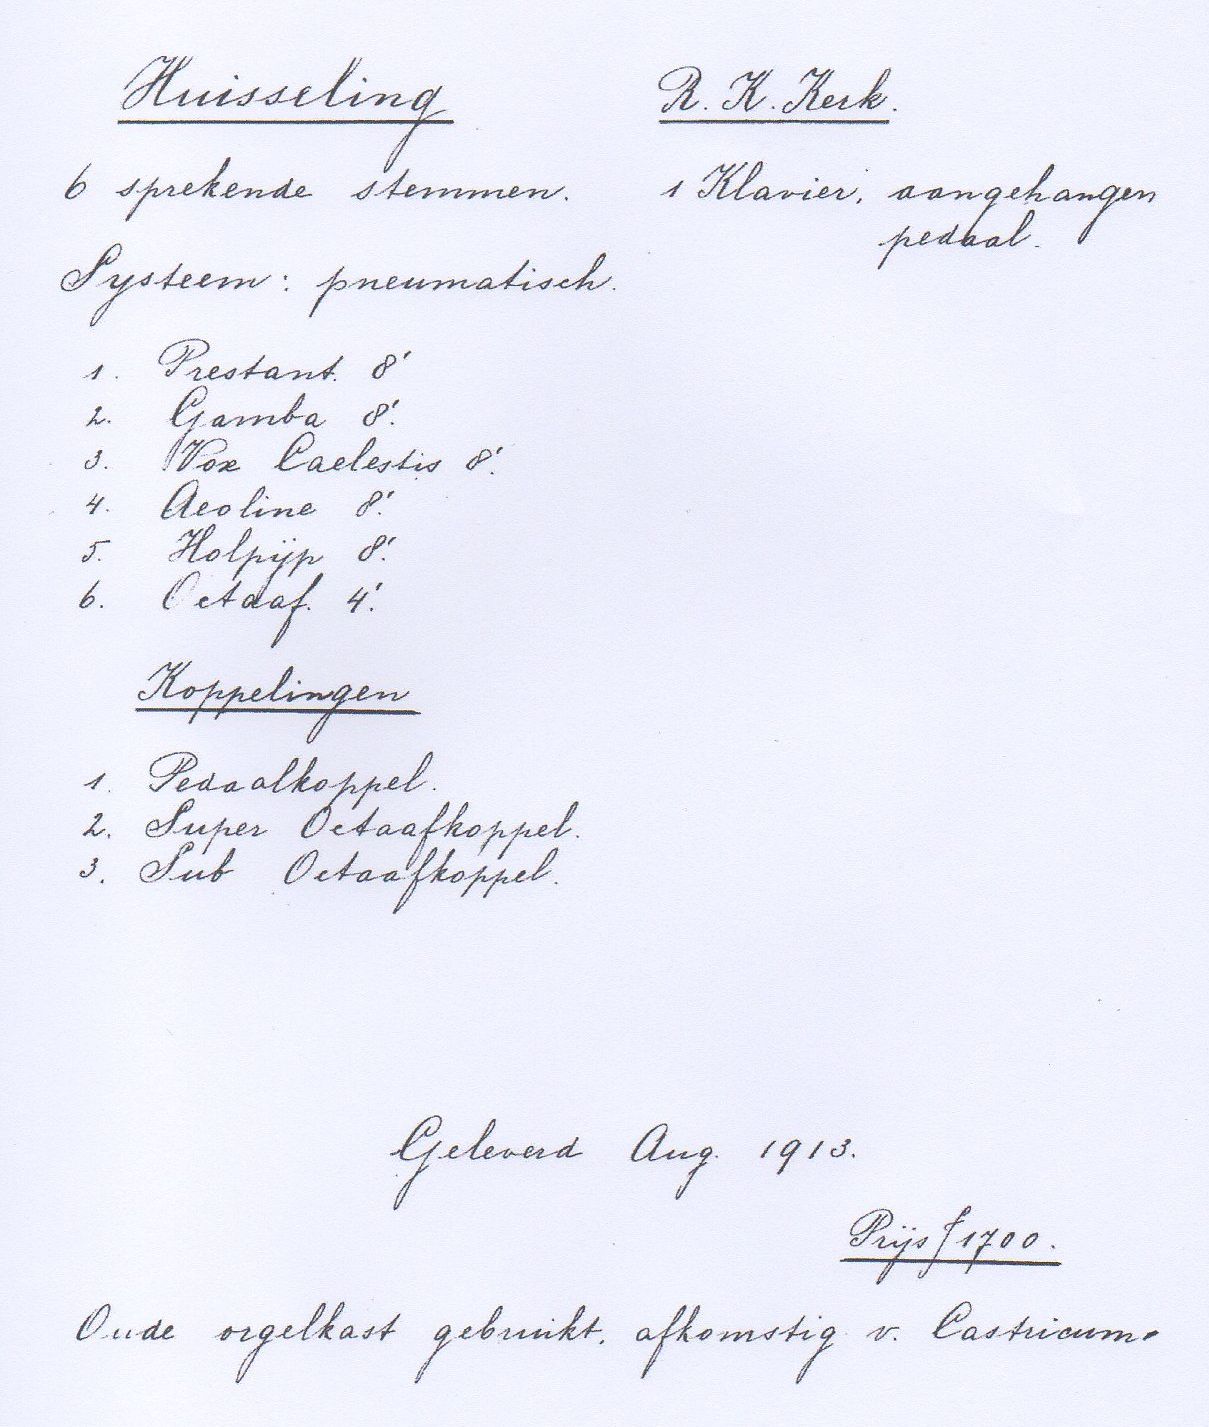 Huisseling R. K. Kerk.
6 sprekende stemmen. 1 Klavier, aangehangen
pedaal.
Systeem: pneumatisch.
1. Prestant. 8'
2. Gamba 8'.
3. Vox Caelestis 8'.
4. Aeoline 8'.
5. Holpijp 8'.
6. Octaaf. 4'.
Koppelingen
1. Pedaalkoppel.
2. Super Octaafkoppel.
3. Sub Octaafkoppel.
Geleverd Aug. 1913.
Prijs ƒ 1700.
Oude orgelkast gebruikt, afkomstig v. Castricum.